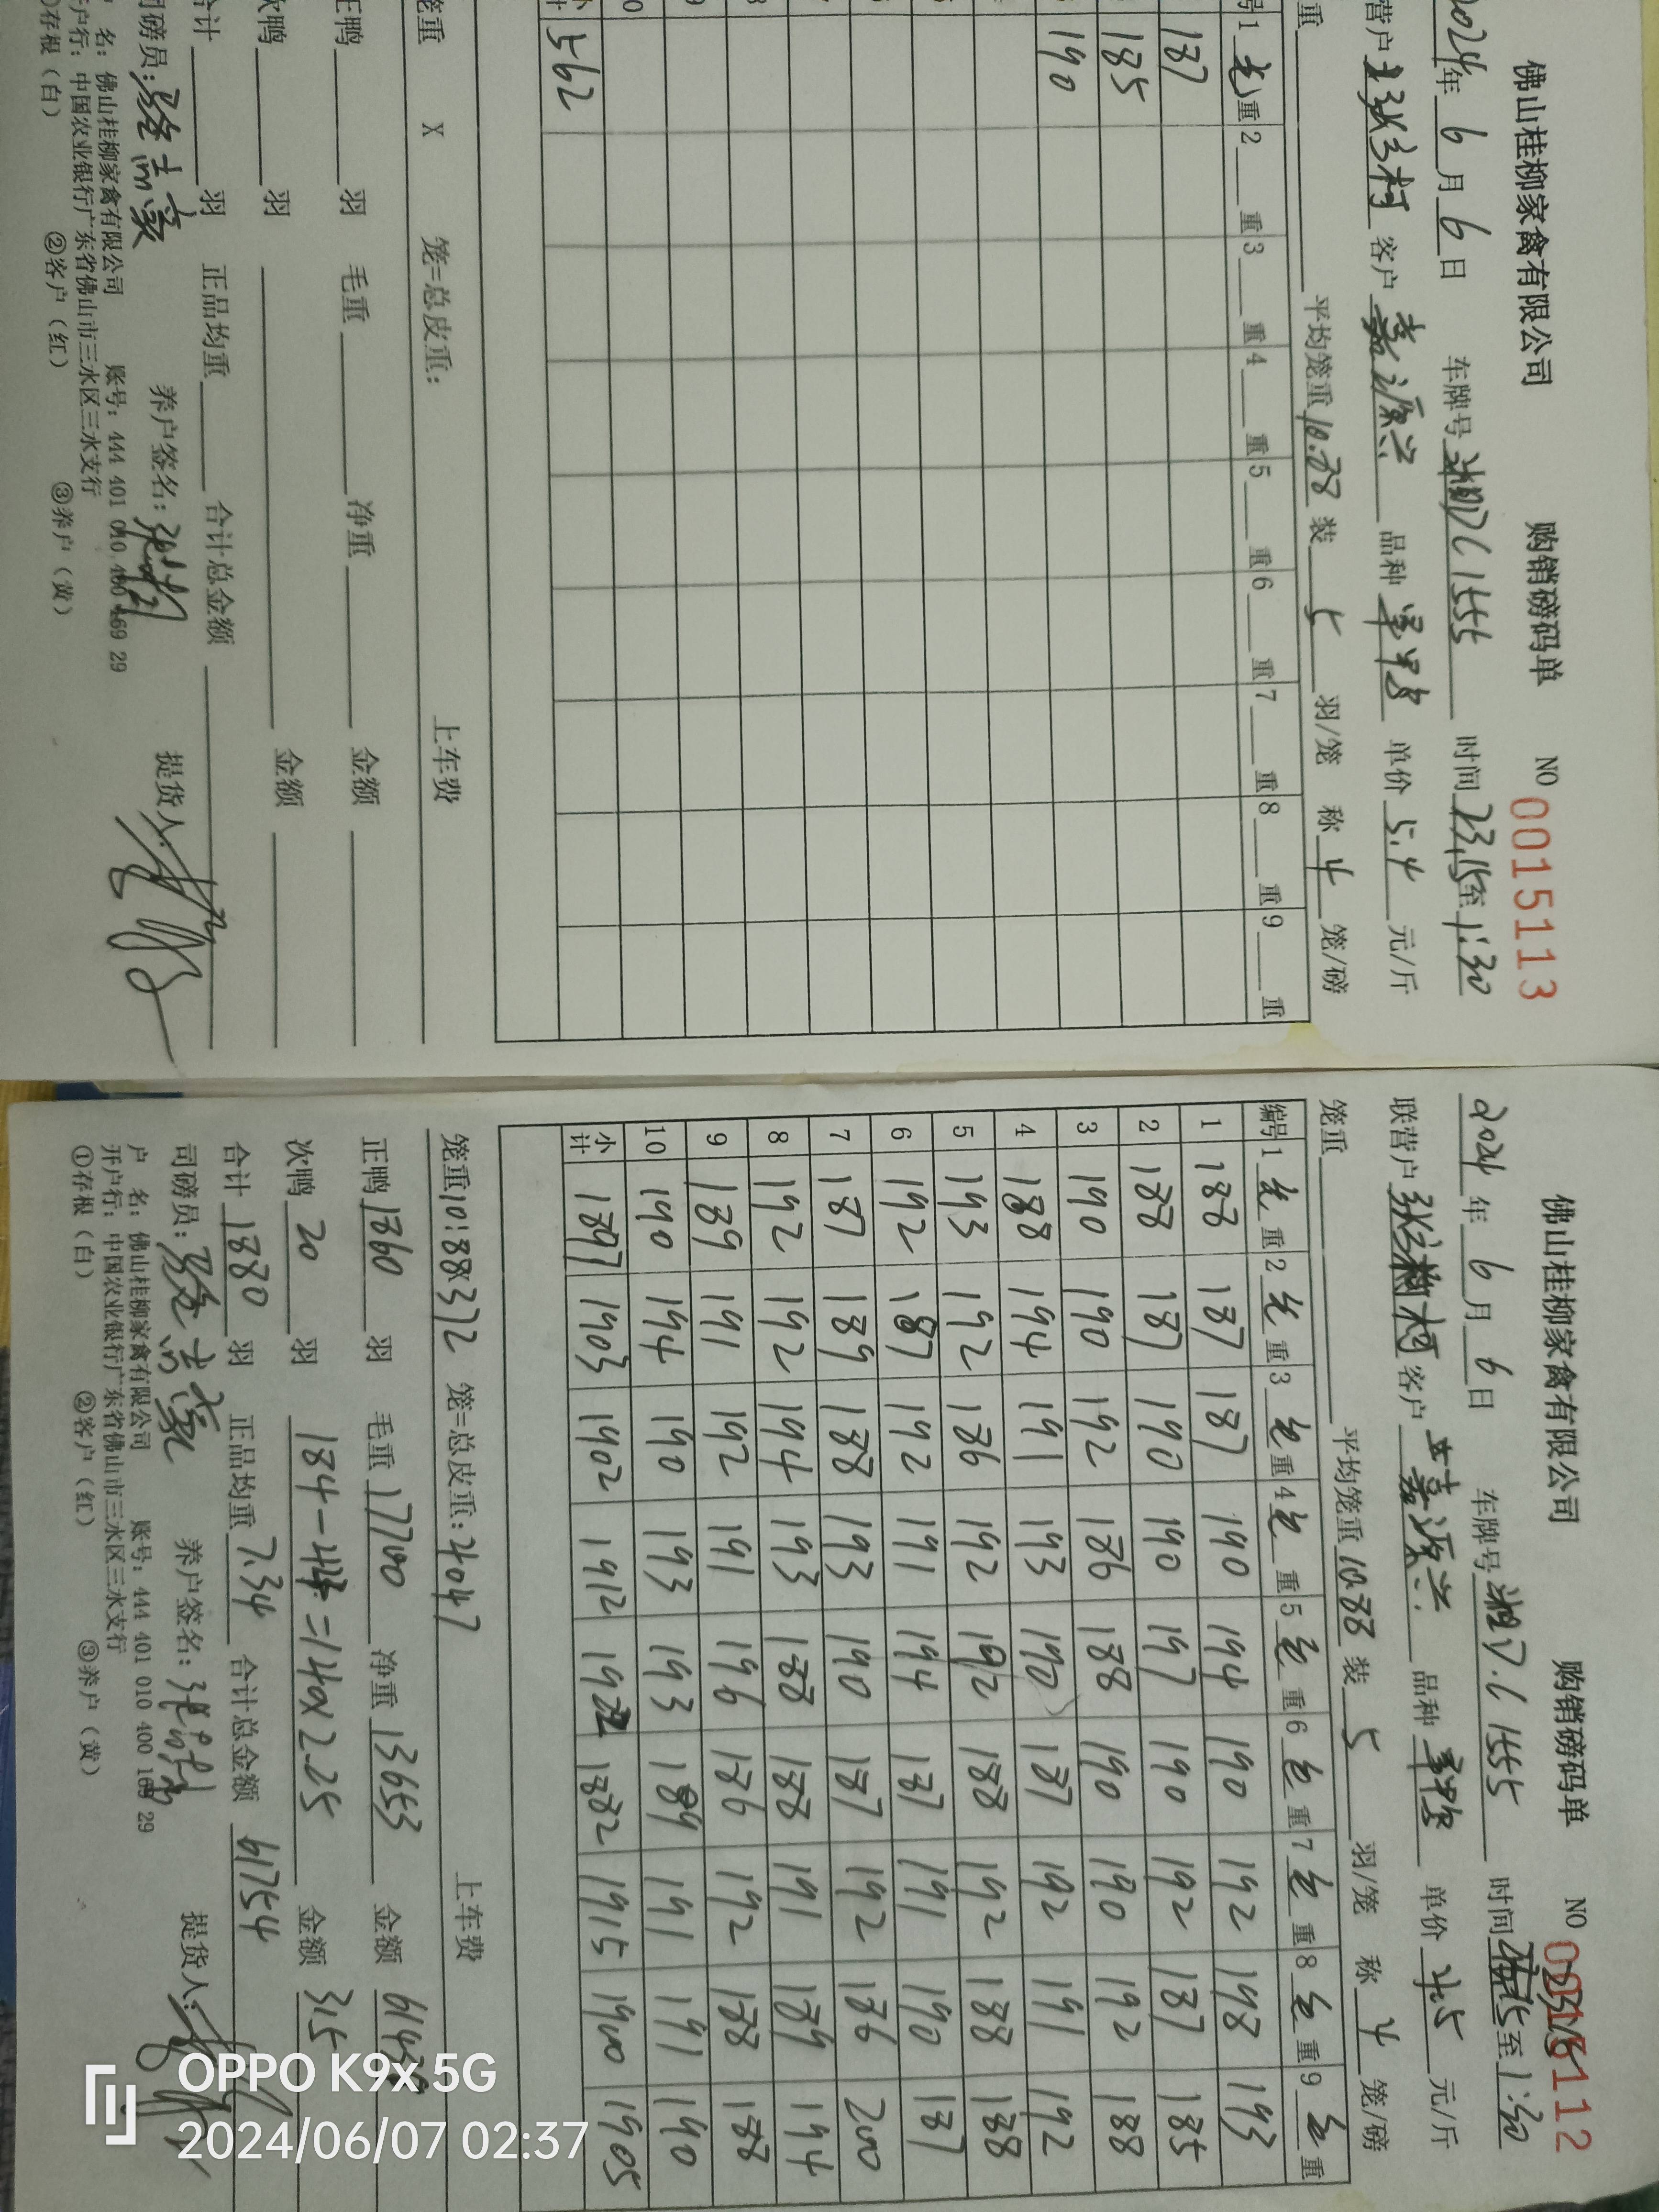 佛山桂柳家禽有限公司 购销磅码单 NO 0015113
2024年6月6日 车牌号 湘 1555 时间23:15至1:30
营户 村 客户 嘉源兴 品种 单价5.4元/斤
重 平均笼重10.88 装5羽/笼 称4笼/磅
号 1 重 2 重 3 重 4 重 5 重 6 重 7 重 8 重 9 重
187
185
190
小计 562
笼重 X 笼=总皮重: 上车费
正鸭 羽 毛重 净重 金额
次鸭 羽 金额
合计 羽 正品均重 合计总金额
司磅员: 养户签名: 提货人:
户 名: 佛山桂柳家禽有限公司 账号: 444 401 010 400 169 29
户行: 中国农业银行广东省佛山市三水区三水支行
存根(白) ②客户(红) ③养户(黄)
佛山桂柳家禽有限公司 购销磅码单 NO 0015112
2024年6月6日 车牌号 湘 1555 时间 至1:30
联营户 村 客户 嘉源兴 品种 单价4.5元/斤
笼重 平均笼重10.88 装5羽/笼 称4笼/磅
编号 1 重 2 重 3 重 4 重 5 重 6 重 7 重 8 重 9 重
1 188 187 187 190 194 190 192 198 193
2 188 187 190 190 197 190 192 187 185
3 190 190 192 186 188 190 190 192 188
4 188 194 191 193 190 187 192 191 192
5 193 192 186 192 192 188 192 188 188
6 192 187 192 191 194 187 191 190 187
7 187 189 188 193 190 187 192 186 200
8 192 192 194 193 188 188 191 189 194
9 189 191 192 191 196 186 192 188 188
10 190 194 190 193 193 189 191 191 190
小计 1897 1903 1902 1912 1922 1882 1915 1900 1905
笼重10.88X372 笼=总皮重:4047 上车费
正鸭1860羽 毛重17700 净重13653 金额
次鸭20羽 184-44=140X2.25 金额315
合计1880羽 正品均重7.34 合计总金额61754
司磅员: 养户签名: 提货人:
户 名: 佛山桂柳家禽有限公司 账号: 444 401 010 400 169 29
开户行: 中国农业银行广东省佛山市三水区三水支行
①存根(白) ②客户(红) ③养户(黄)
OPPO K9x 5G
2024/06/07 02:37